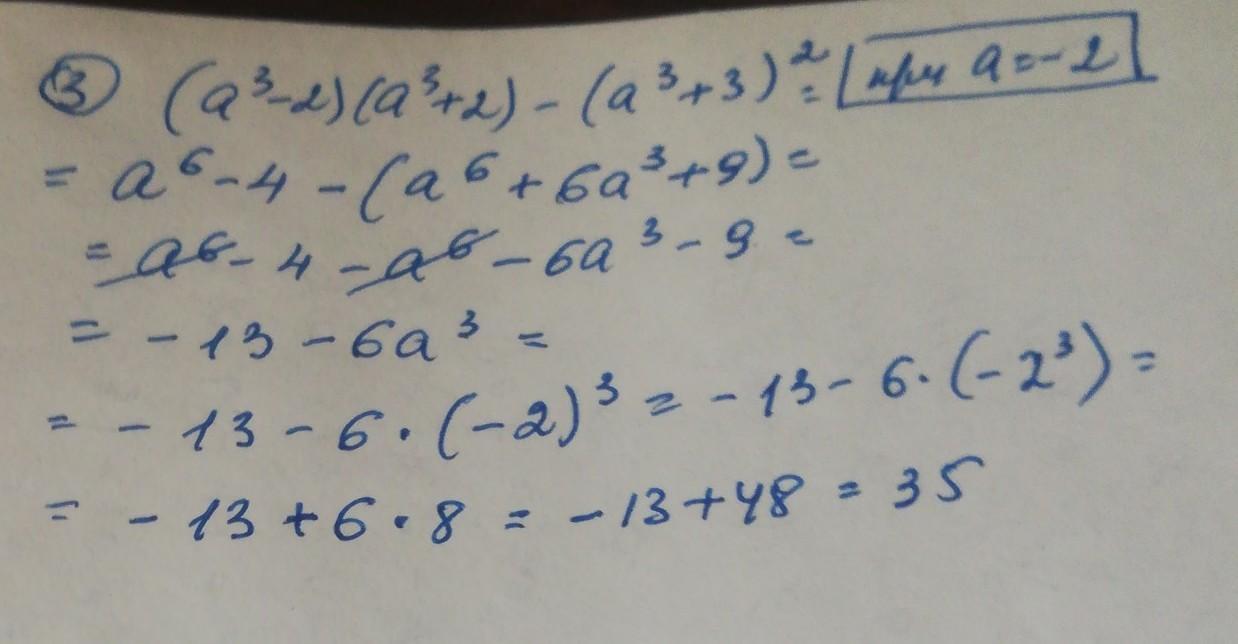 ③ (a³-2)(a³+2) - (a³+3)² = при a = -2
= a⁶ - 4 - (a⁶ + 6a³ + 9) =
= a⁶ - 4 - a⁶ - 6a³ - 9 =
= - 13 - 6a³ =
= - 13 - 6 · (-2)³ = - 13 - 6 · (-2³) =
= - 13 + 6 · 8 = - 13 + 48 = 35